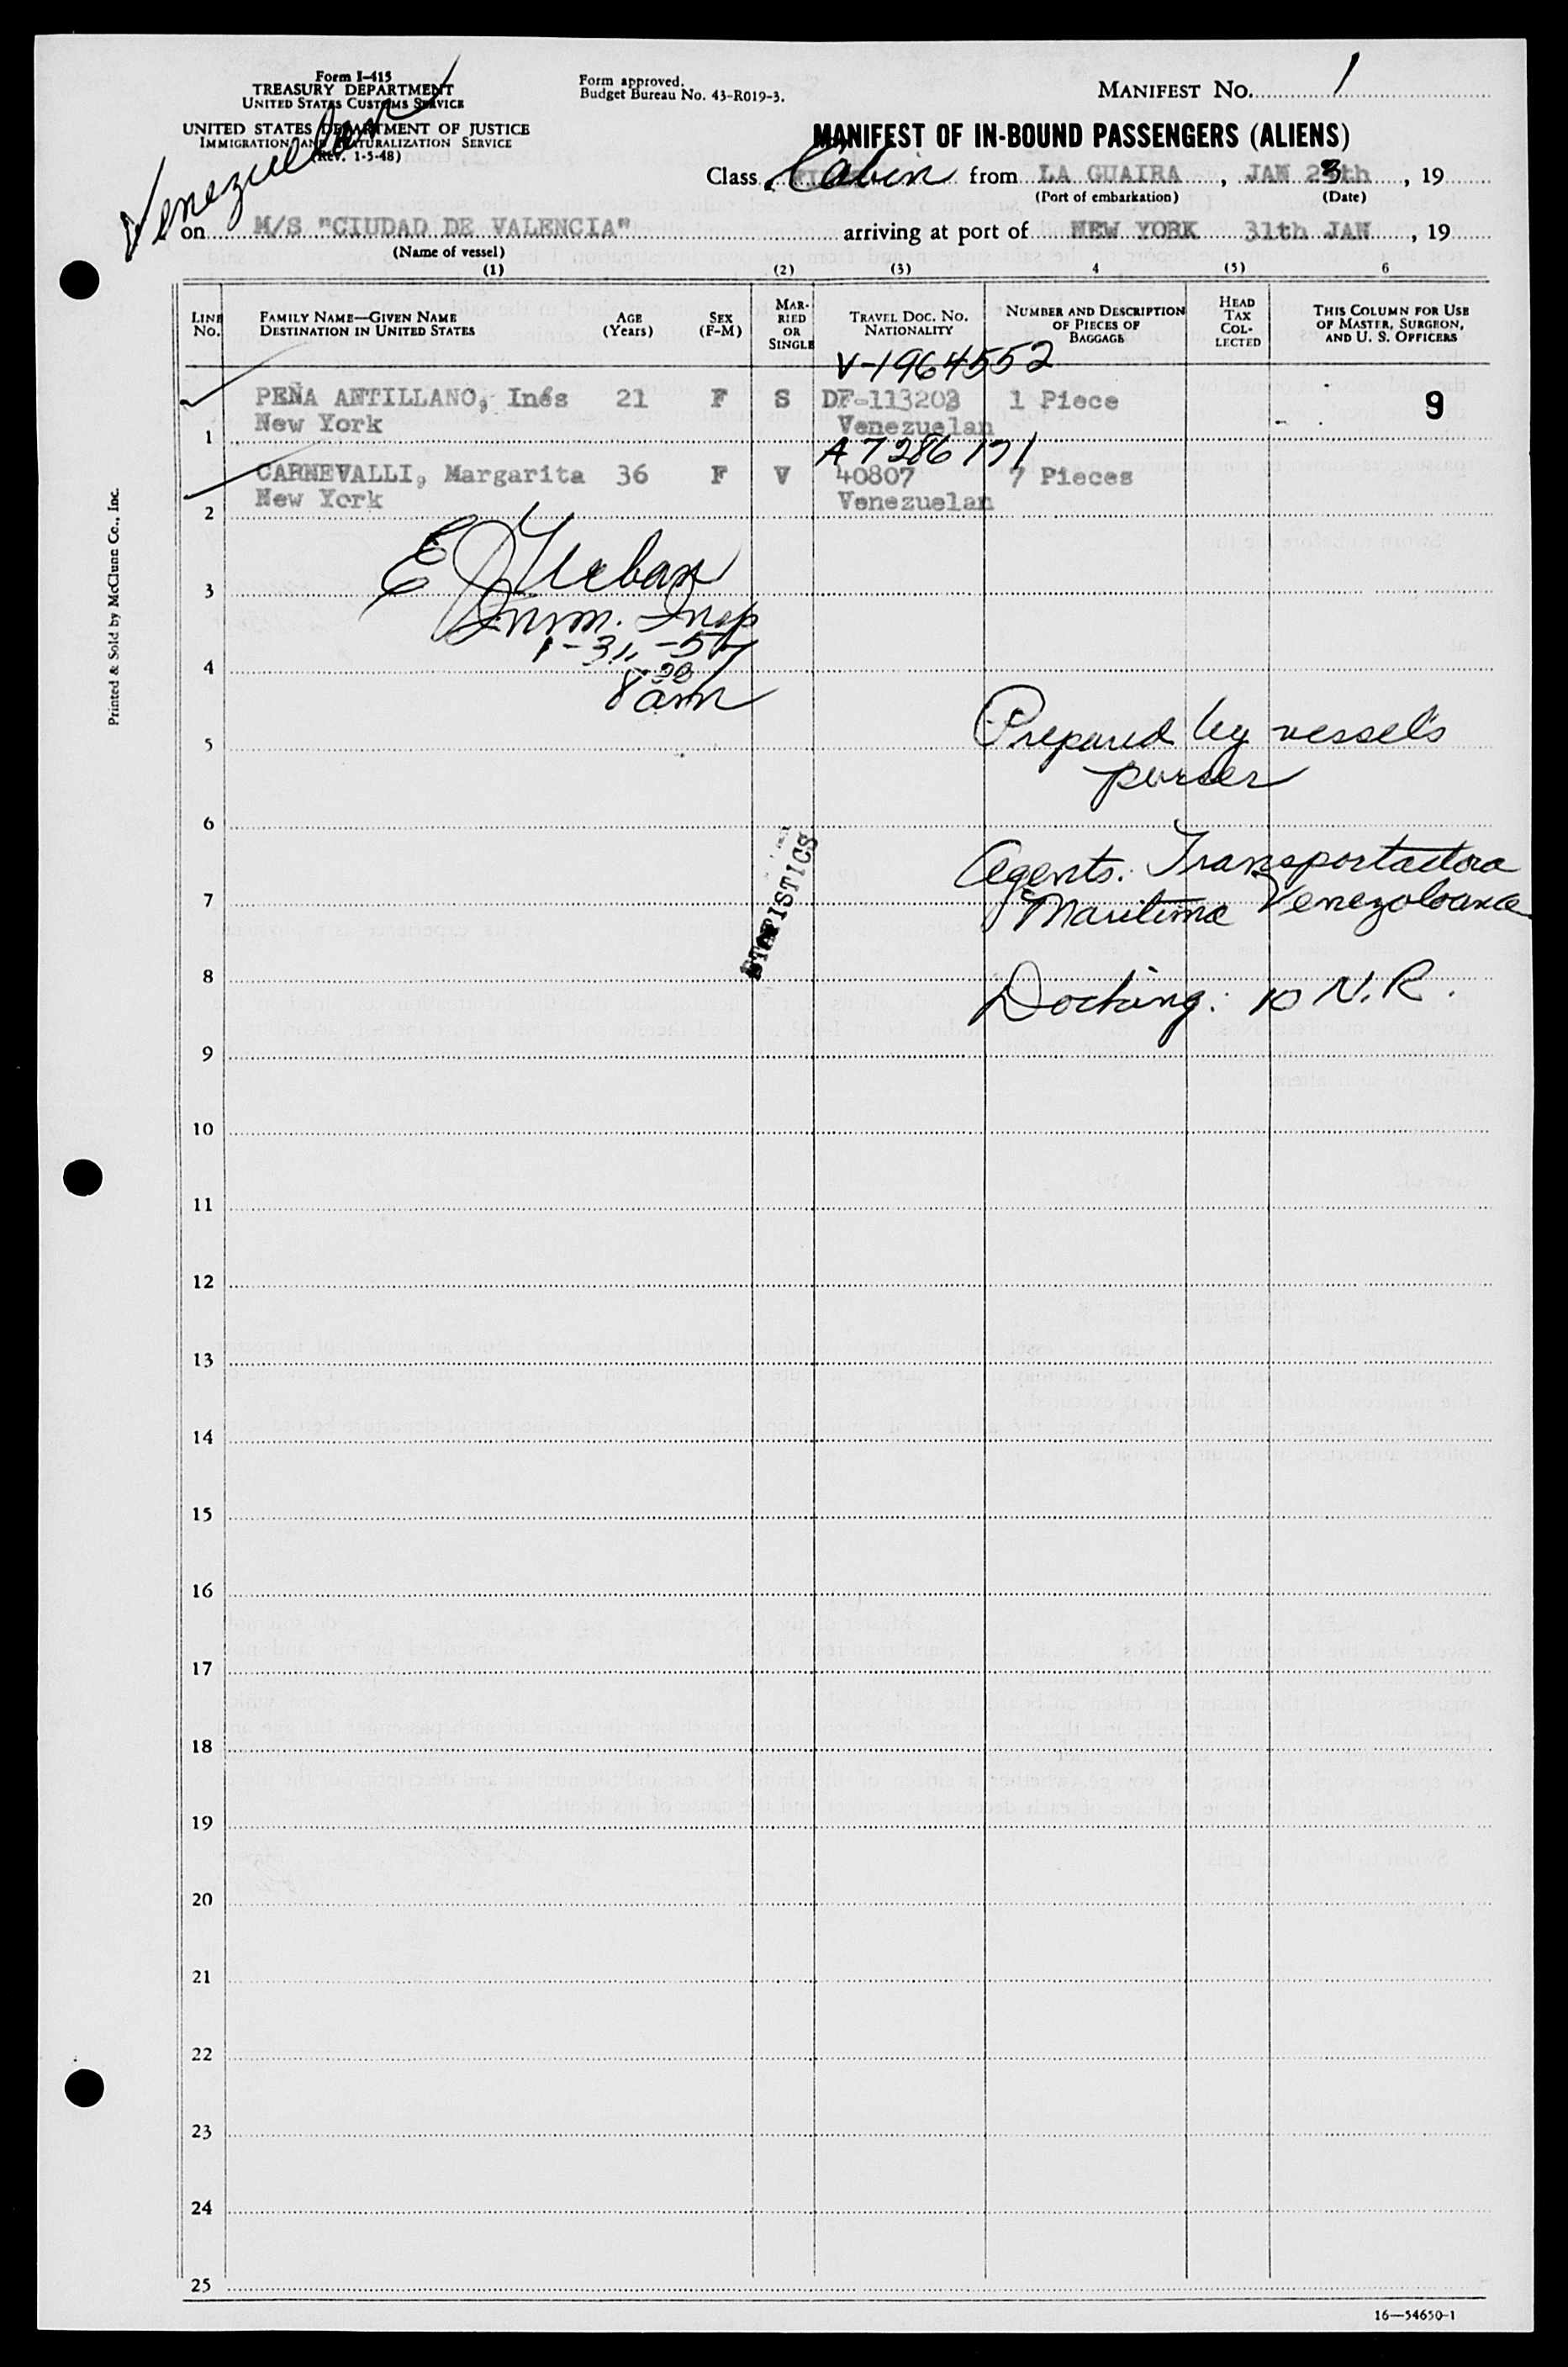 Form I-415
TREASURY DEPARTMENT
UNITED STATES CUSTOMS SERVICE
UNITED STATES DEPARTMENT OF JUSTICE
IMMIGRATION AND NATURALIZATION SERVICE
(Rev. 1-5-48)
Venezuelan
Form approved.
Budget Bureau No. 43-R019-3.
MANIFEST NO. 1
MANIFEST OF IN-BOUND PASSENGERS (ALIENS)
Class Cabin from LA GUAIRA, JAN 23th, 19
(Port of embarkation) (Date)
on M/S "CIUDAD DE VALENCIA" arriving at port of NEW YORK 31th JAN, 19
(Name of vessel)
(1) (2) (3) 4 (5) 6
LINE NO. FAMILY NAME—GIVEN NAME DESTINATION IN UNITED STATES AGE (Years) SEX (F-M) MARRIED OR SINGLE TRAVEL DOC. NO. NATIONALITY NUMBER AND DESCRIPTION OF PIECES OF BAGGAGE HEAD TAX COLLECTED THIS COLUMN FOR USE OF MASTER, SURGEON, AND U. S. OFFICERS
V-1964552
PEÑA ANTILLANO, Inés 21 F S DF-113203 1 Piece 9
1 New York Venezuelan
A7286171
CARNEVALLI, Margarita 36 F V 40807 7 Pieces
2 New York Venezuelan
E J Urban
3
Imm. Insp
1-31-57
4
8 30 am
Prepared by vessel's
5
purser
6
Agents: Transportadora
7
Maritima Venezolana
STATISTICS
8
Docking: 10 N.R.
9
10
11
12
13
14
15
16
17
18
19
20
21
22
23
24
25
Printed & Sold by McClunn Co., Inc.
16—54650-1